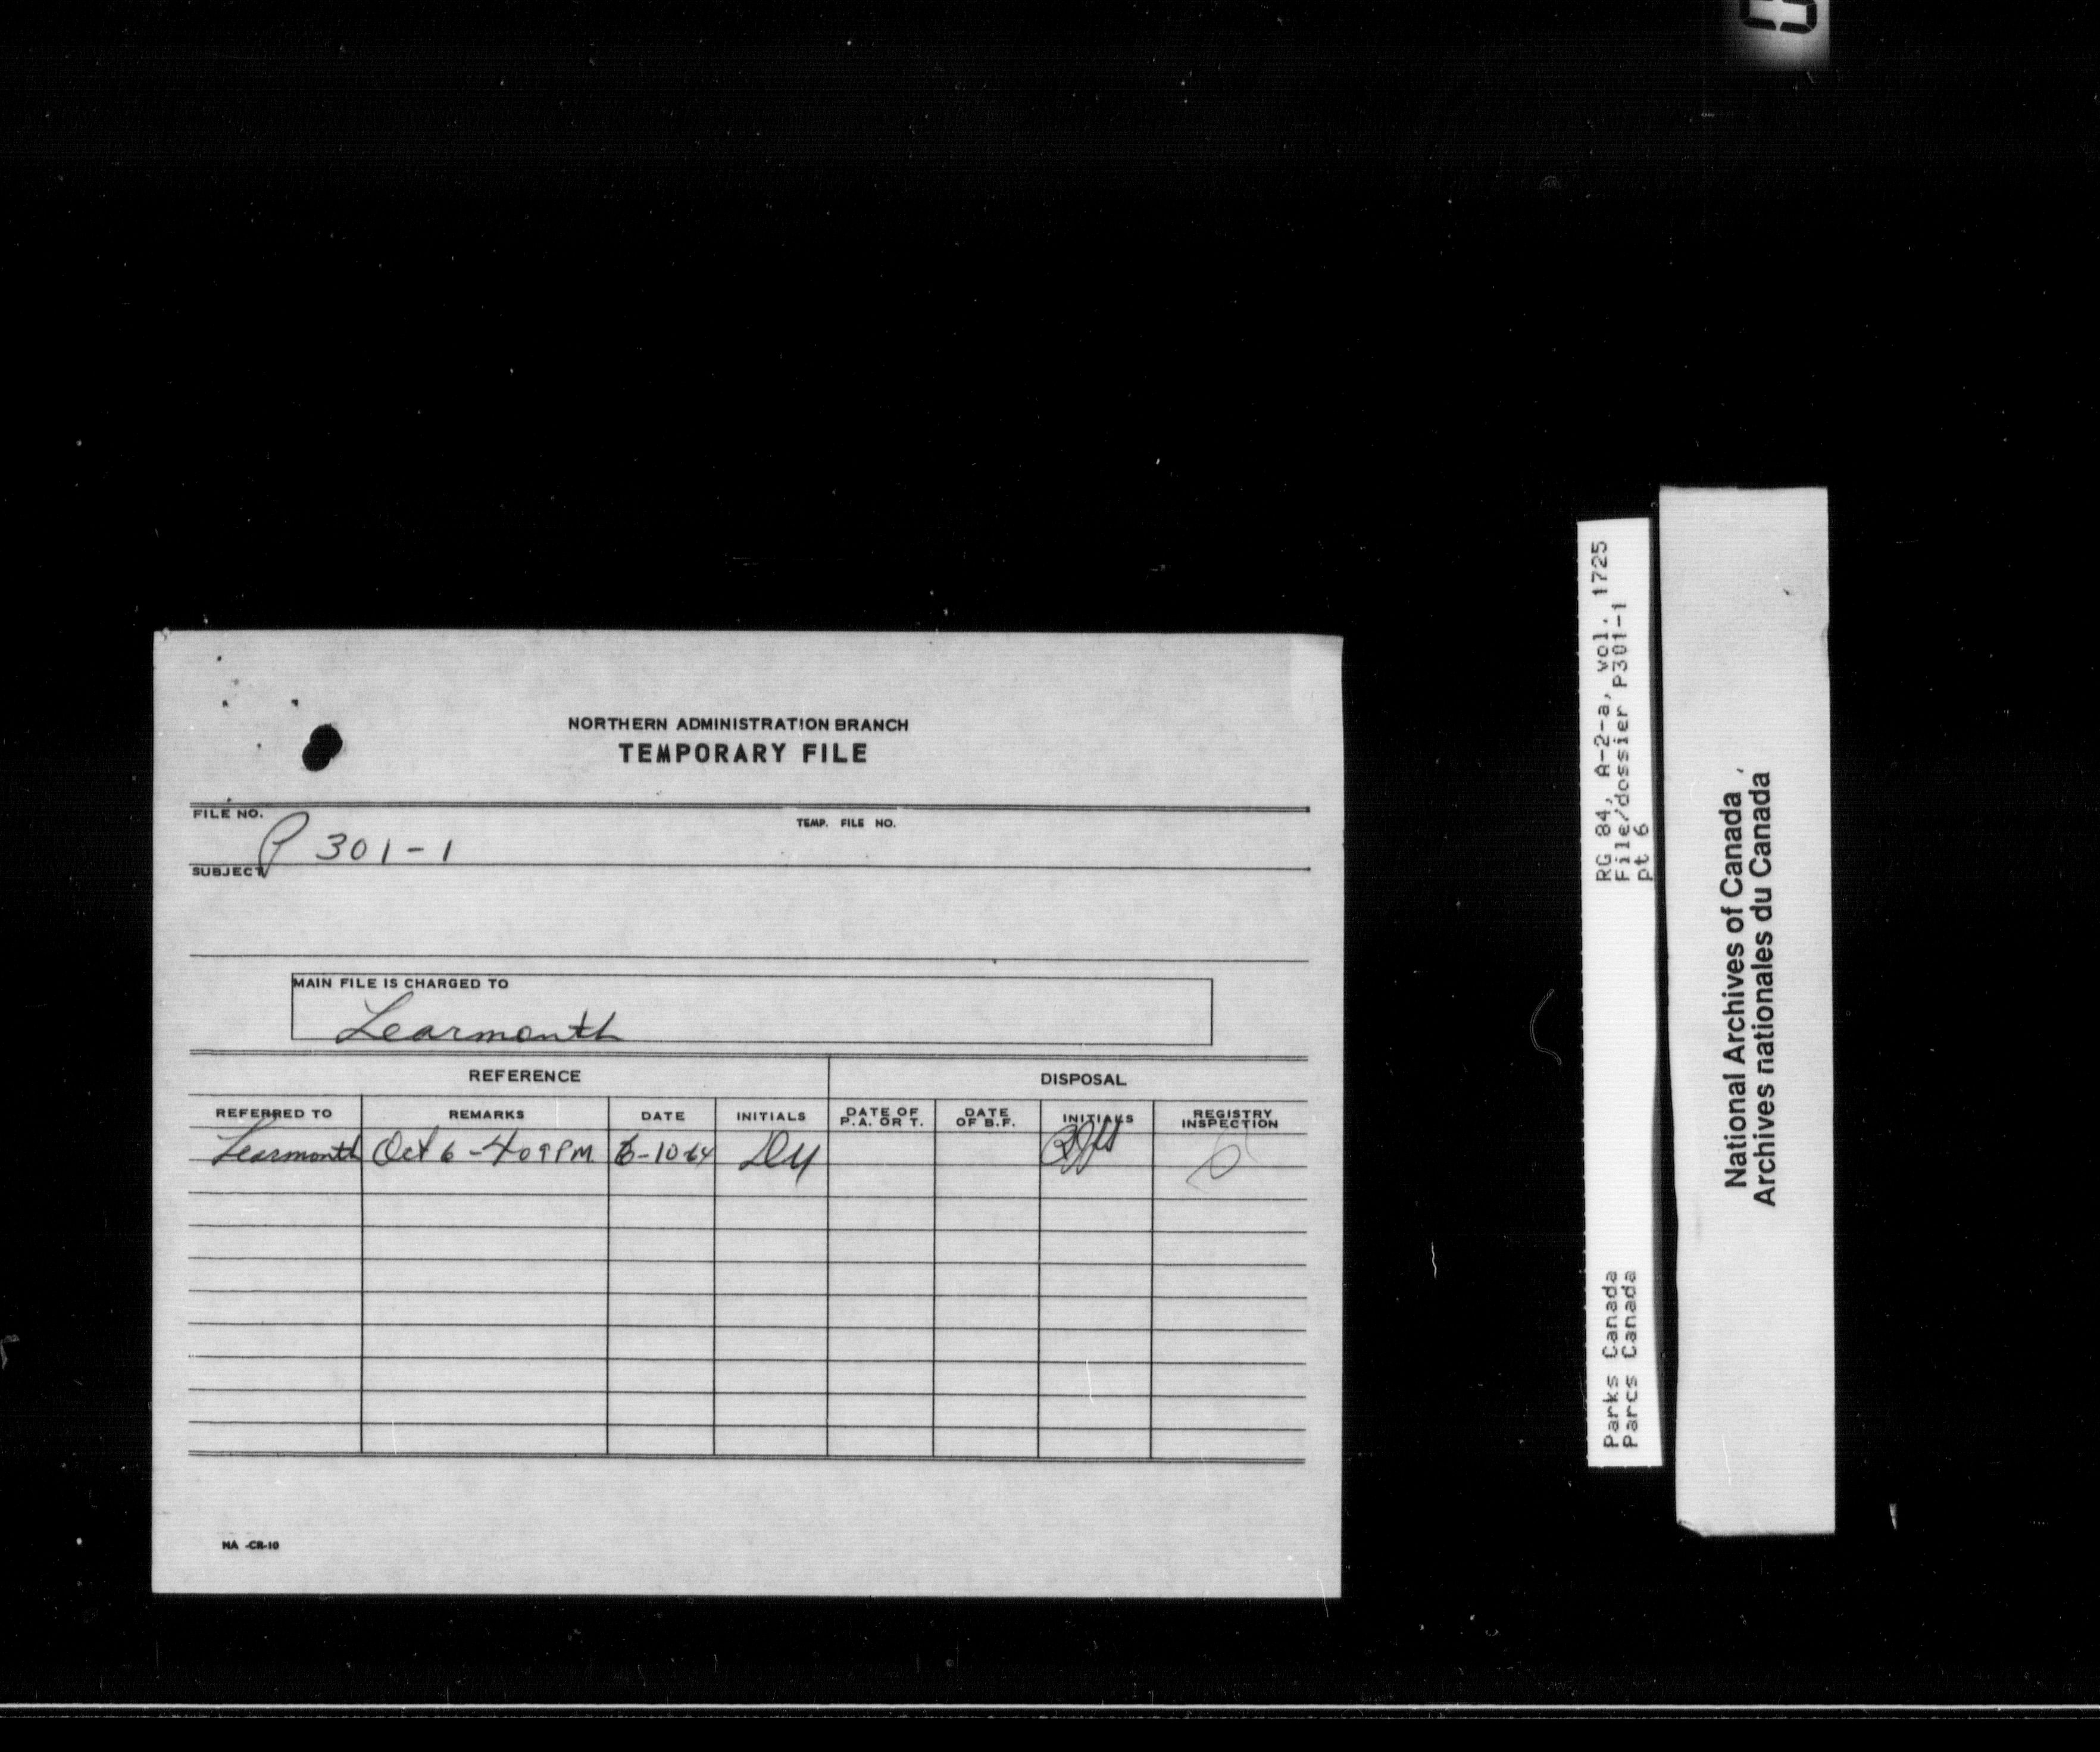 NORTHERN ADMINISTRATION BRANCH
TEMPORARY FILE
FILE NO.
P 301-1
TEMP. FILE NO.
SUBJECT
MAIN FILE IS CHARGED TO
Learmonth
REFERENCE
DISPOSAL
REFERRED TO REMARKS DATE INITIALS DATE OF P.A. OR T. DATE OF B.F. INITIALS REGISTRY INSPECTION
Learmonth Oct 6 - 409 PM 6-10-64
NA -CR-10
RG 84, A-2-a, vol. 1725
File/dossier P301-1
pt 6
Parks Canada
Parcs Canada
National Archives of Canada
Archives nationales du Canada